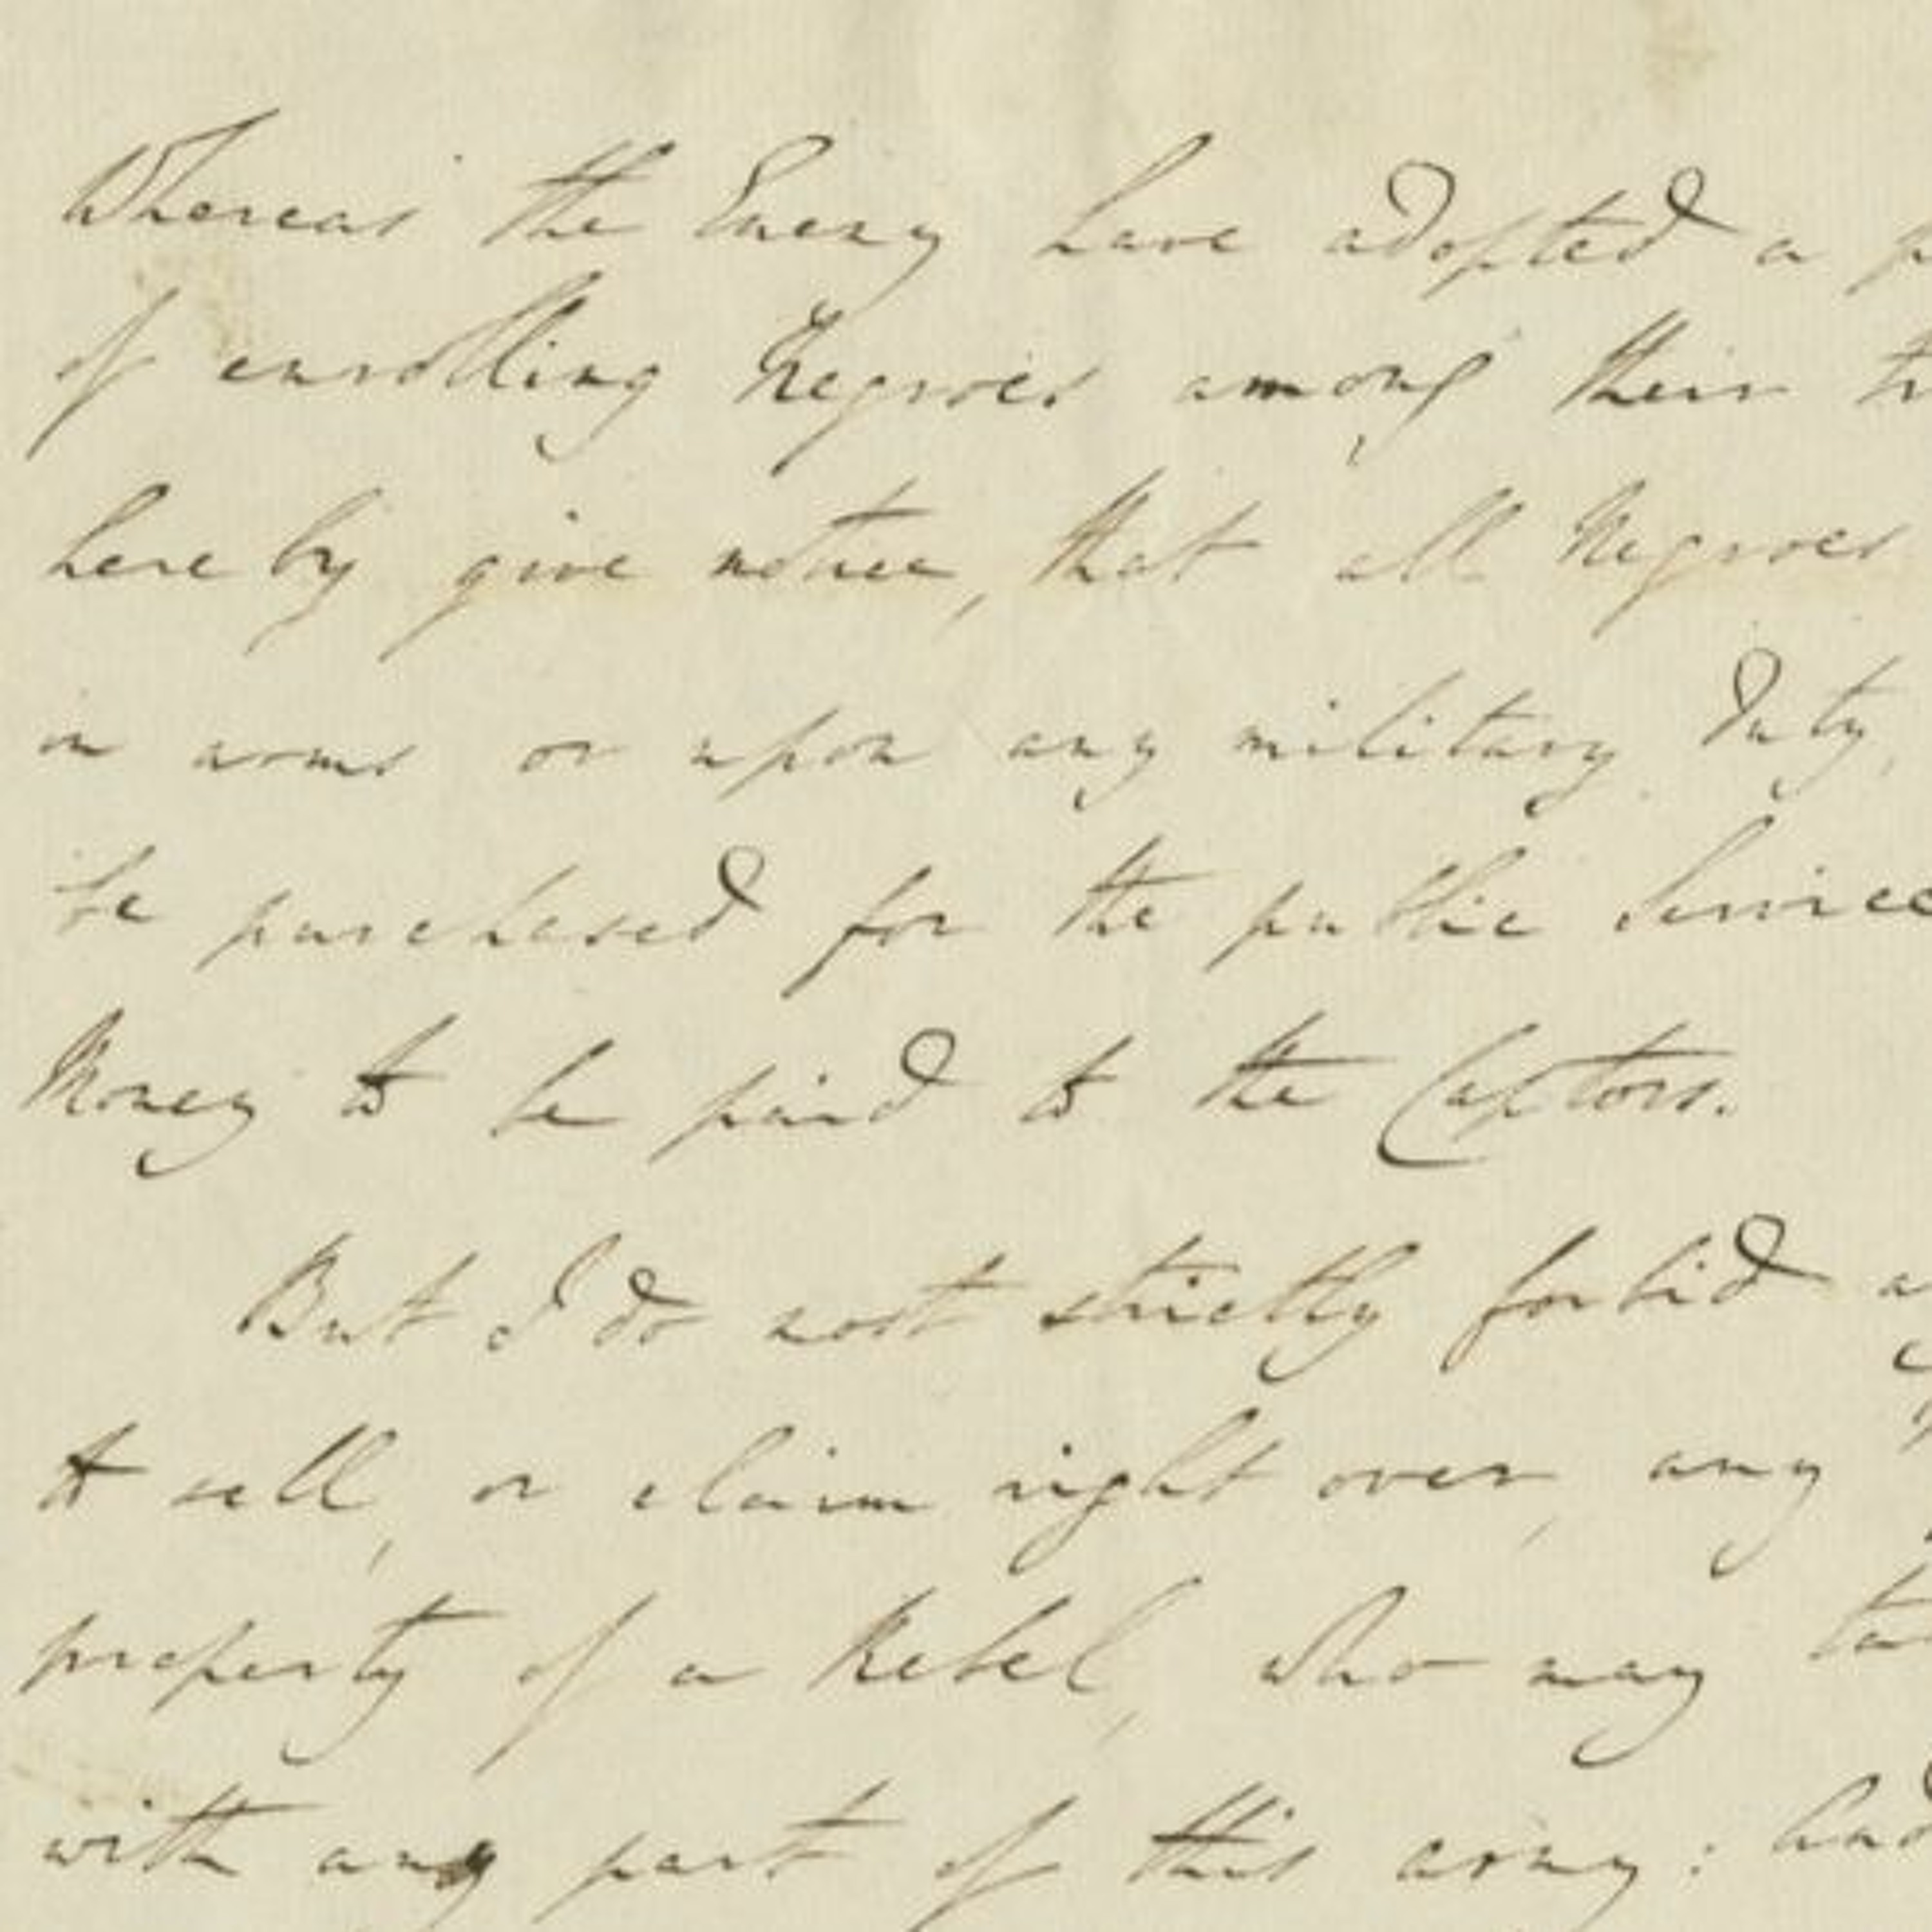 Whereas the Enemy have adopted a p
of enrolling Negroes among their tr
hereby give notice, that all Negroes
in arms or upon any military Duty,
be purchased for the public Service
Money to be paid to the Captors.
But I do most strictly forbid a
to sell, or claim right over, any
property of a Rebel, who may ta
with any part of this army: And